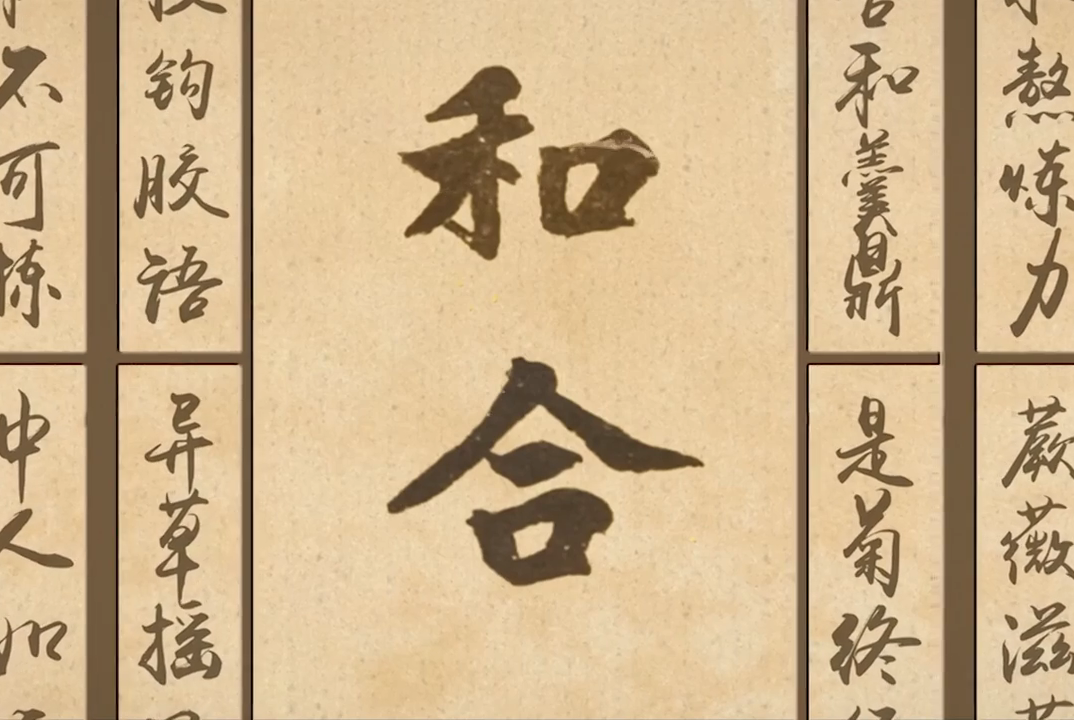 和合
不可拣
钩胶语
合和羹鼎
熬炼力
中人如
异草摇
是菊终
蕨薇滋